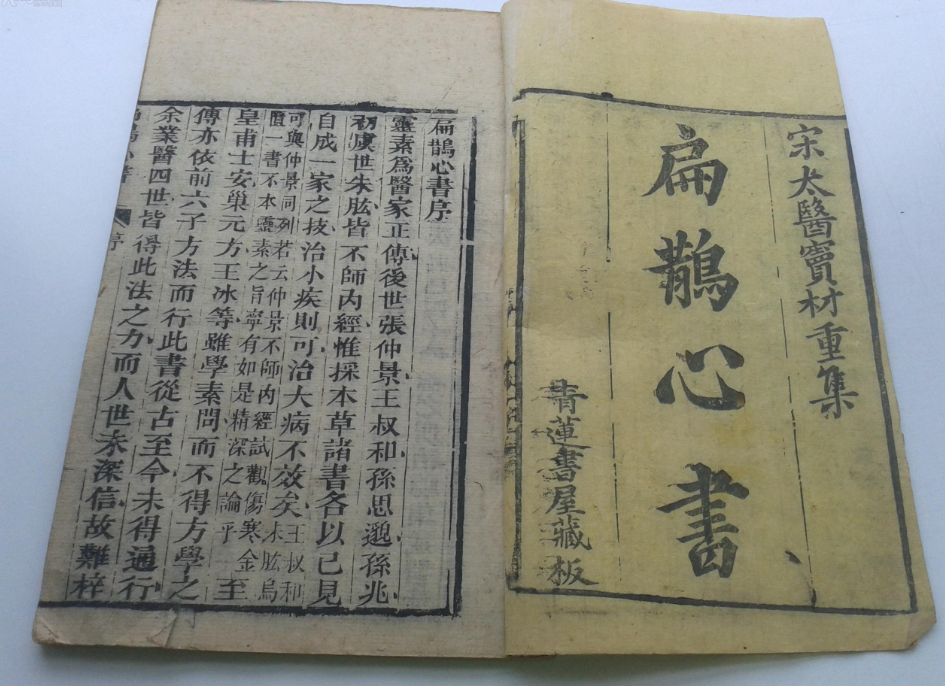 宋太醫竇材重集
扁鵲心書
青蓮書屋藏板
扁鵲心書序
靈素為醫家正傳後世張仲景王叔和孫思邈孫兆
初虞世朱肱皆不師內經惟採本草諸書各以己見
自成一家之技治小疾則可治大病不效矣
王叔和朱肱烏
可與仲景同列若云仲景不師內經試觀傷寒金
匱一書不本靈素之旨寧有如是精深之論乎
至
皇甫士安巢元方王冰等雖學素問而不得方學之
傳亦依前六子方法而行此書從古至今未得通行
余業醫四世皆得此法之力而人世未深信故難梓
扁鵲心書
序